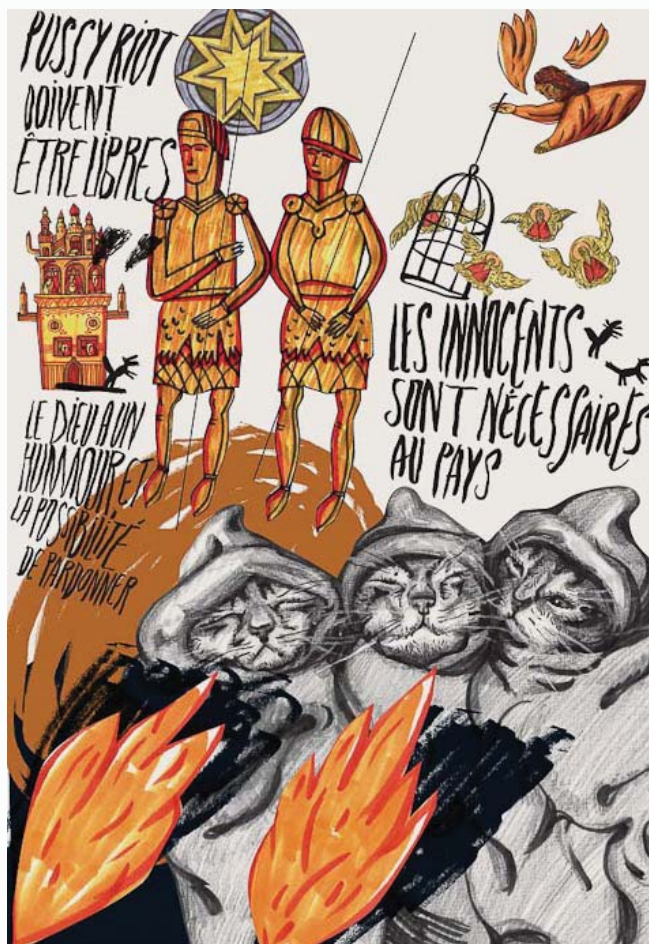 PUSSY RIOT
DOIVENT
ÊTRE LIBRES
LES INNOCENTS
SONT NÉCESSAIRES
AU PAYS
LE DIEU A UN
HUMOUR ET
LA POSSIBILITÉ
DE PARDONNER